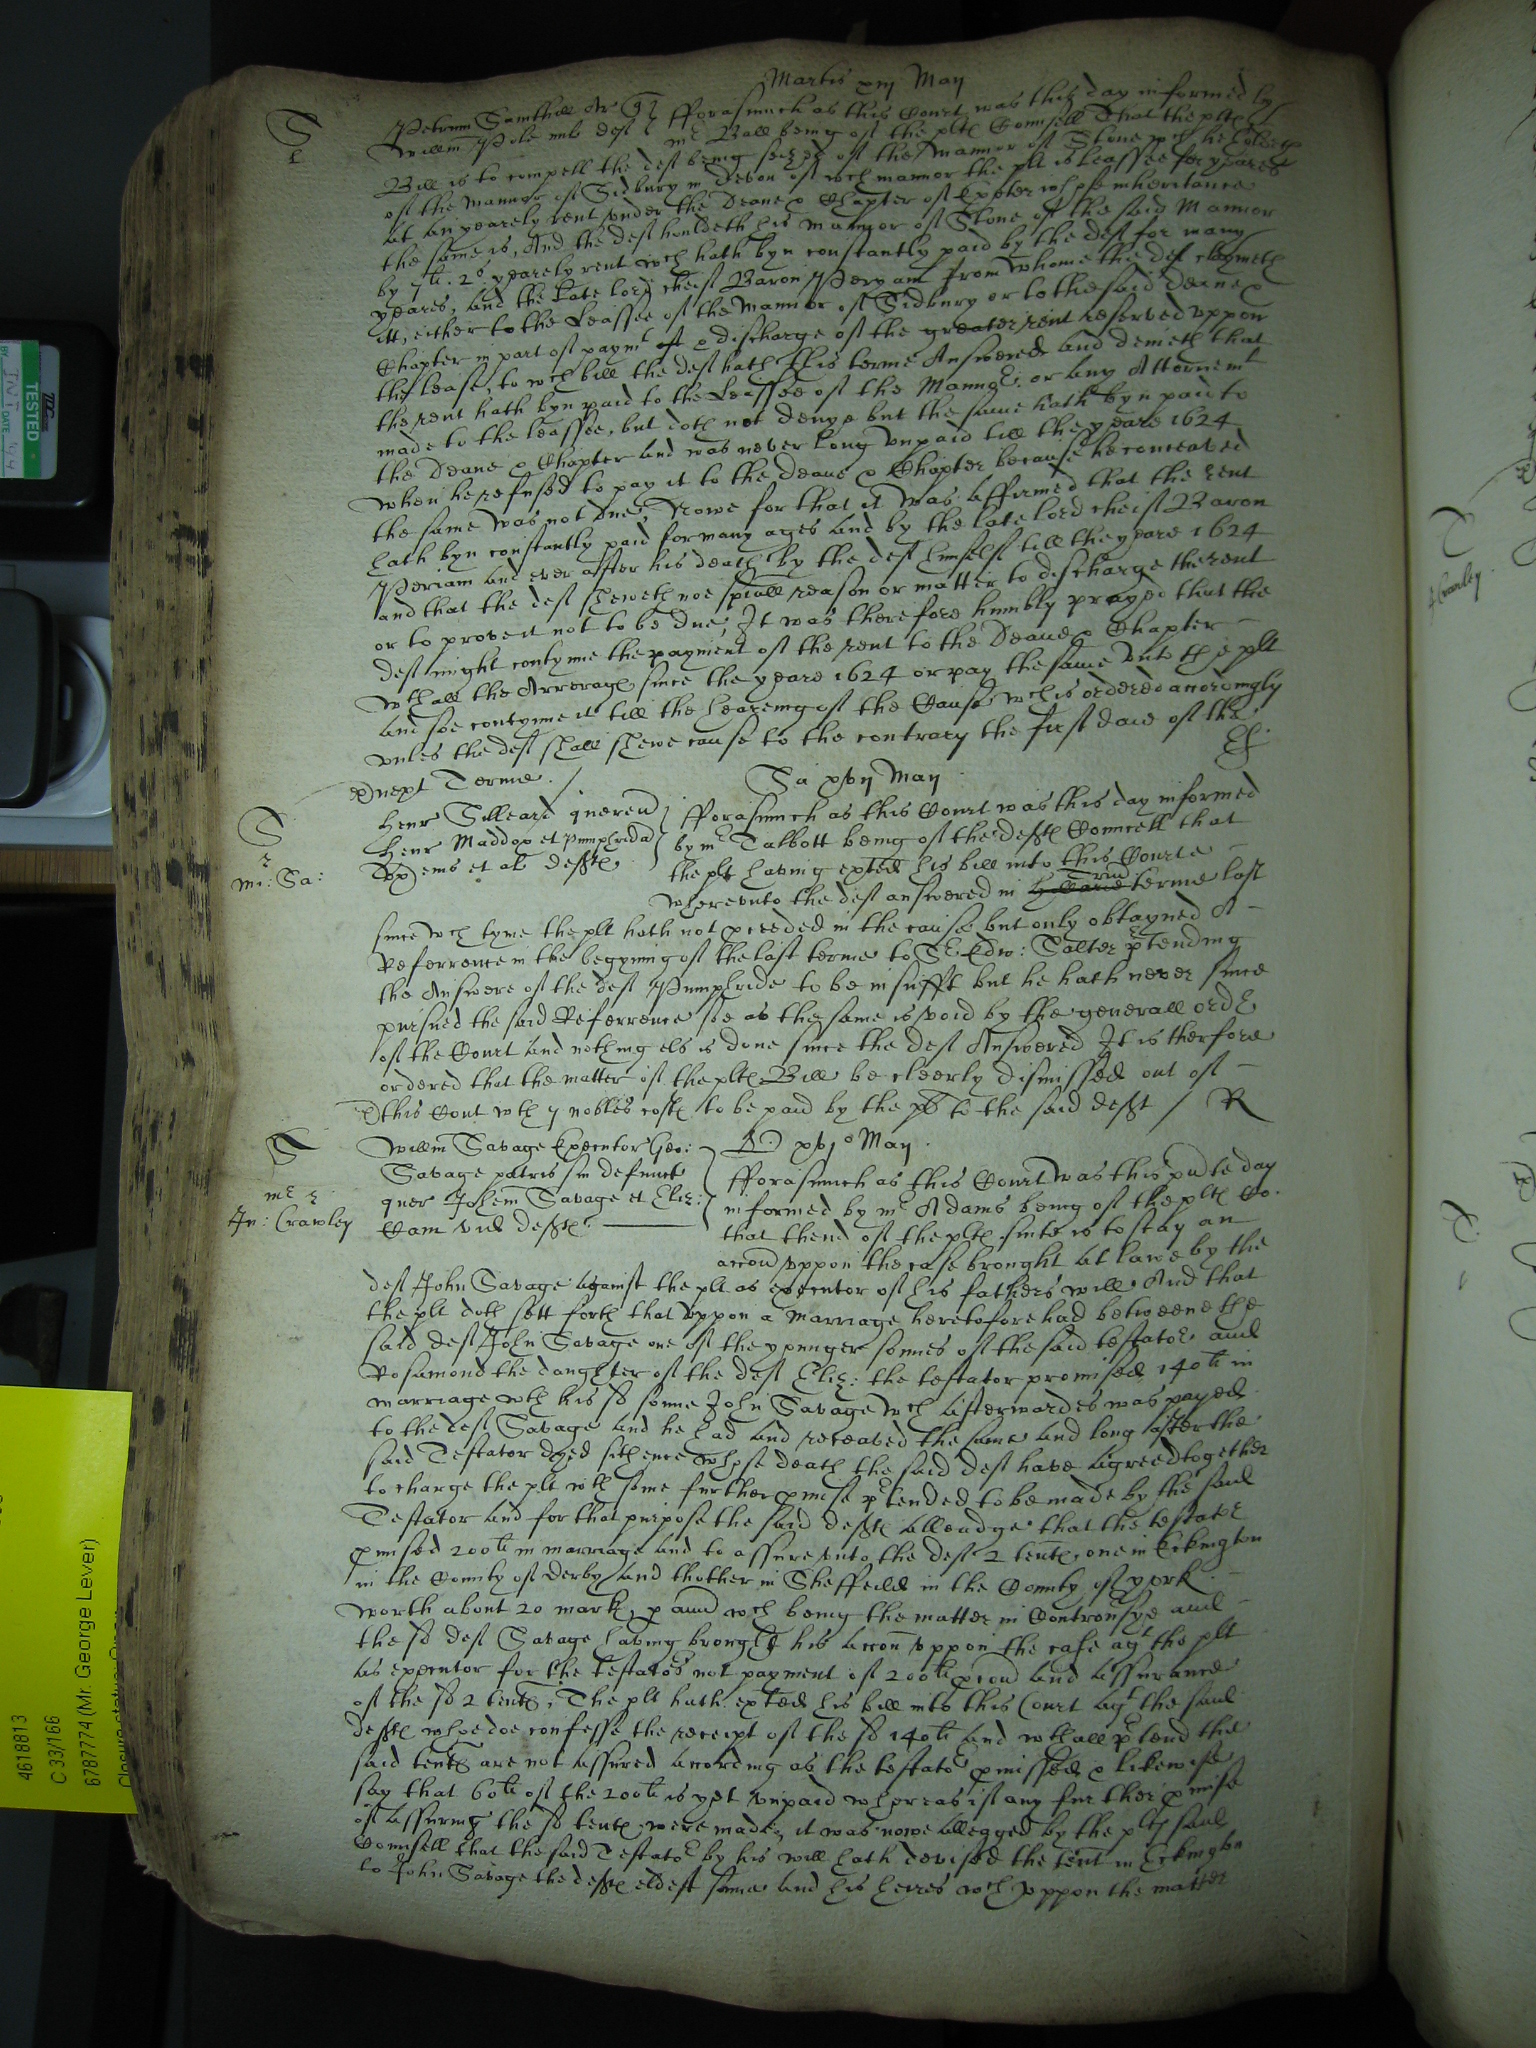 Martis xiij May
S
Petrum Samthill Ar qz fforasmuch as this Court was this day informed by
Willm Pole mil def mr Ball being of the plts Counsell That the plts
Bill is to compell the def being seized of the Mannor of Stone wch he holdeth
of the Mannor of Sidbury in Devon of wch mannor the plt is Leassee for yeares
at an yearely rent under the Deane & Chapter of Exeter whose inheritance
the same is, And the def houldeth his Mannor of Stone of the said Mannor
by 7li. 2s yearely rent wch hath byn constantly paid by the def for many
yeares, and the Late lord cheif Baron Peryam from whome the def claymeth
itt, either to the Leassee of the Mannor of Sidbury or to the said Deane &
Chapter in part of paymt & discharge of the greater rent reserved uppon
the lease, to wch bill the def hath this terme Answered and denieth that
the rent hath byn paid to the Leassee of the Mannor or any Attornemt
made to the leassee, but doth not denye but the same hath byn paid to
the Deane & Chapter and was never long unpaid till the yeare 1624
when he refused to pay it to the Deane & Chapter because he conceaved
the same was not due, Nowe for that it was affirmed that the rent
hath byn constantly paid for many ages and by the late lord cheif Baron
Periam and ever after his death by the def himself till the yeare 1624
and that the def sheweth noe spiall reason or matter to discharge the rent
or to prove it not to be due, It was therefore humbly prayed that the
def might contynue the payment of the rent to the Deane & Chapter
wth all the Arrerages since the yeare 1624 or pay the same unto the plt
and soe contynue it till the heareing of the Cause wch is ordered accordingly
unles the def shall shewe cause to the contrary the first daie of the
next Terme.
Sa xvij May
S
mi: Sa:
Henr Silleard queren fforasmuch as this Court was this day informed
Henr Maddox et Pumphrida by mr Talbott being of the defts Councell that
et al defts the plt having exhted his bill into this Courte
whereunto the def answered in Hillarie Trin terme last
since wch tyme the plt hath not proceeded in the cause but only obtayned A
Referrence in the begynning of the last terme to Sr Edw: Salter ptending
the Answere of the def Pumphride to be insufft but he hath never since
pursued the said Referrence soe as the same is void by the generall order
of the Court and nothing els is done since the def Answered It is therfore
ordered that the matter of the plts Bill be cleerly dismissed out of
this Court wth 7 nobles costs to be paid by the plt to the said deft / R
S
mr
Jn: Crawley
Willm Savage Executor Geo: xvjo May.
Savage patris sui defunct fforasmuch as this Court was this pnte day
quer Johem Savage et Eliz: informed by mr Adams being of the plts Co.
Cam vid defts that thend of the plts suite is to stay an
accon uppon the case brought at lawe by the
def John Savage against the plt as executor of his fathers will And that
the plt doth sett forth that uppon a marriage heretofore had betweene the
said def John Savage one of the younger sonnes of the said testator and
Rosamond the daughter of the def Eliz: the testator promised 140li in
marriage wth his sd sonne John Savage wch afterwardes was payed
to the def Savage and he had and receaved the same and long after the
said Testator dyed sithence whose death the said def have agreed together
to charge the plt wth some further pmise ptended to be made by the said
Testator and for that purpose the said defts alleadge that the testator
pmised 200li in marriage and to assure unto the def 2 tents, one in Eckington
in the County of Derby and thother in Sheffeild in the County of york
worth about 20 marks p ann wch being the matter in Controvsye and
the sd def Savage having brought his accon uppon the case agt the plt
as executor for the testators not payment of 200li pcon and assurance
of the sd 2 tents, The plt hath exhted his bill into this Court agt the said
defts whoe doe confesse the receipt of the sd 140li and wthall ptend the
said tents are not assured according as the testator pmissed & likewise
say that 60li of the 200li is yet unpaid whereas if any further pmise
of assuring the sd tents were made, it was nowe alledged by the plts said
Counsell that the said Testator by his will hath devised the tent in Eckington
to John Savage the defts eldest sonne and his heires wch uppon the matter
Crawley
TESTED
BY INT DATE
4618813
C 33/166
6787774 (Mr. George Lever)